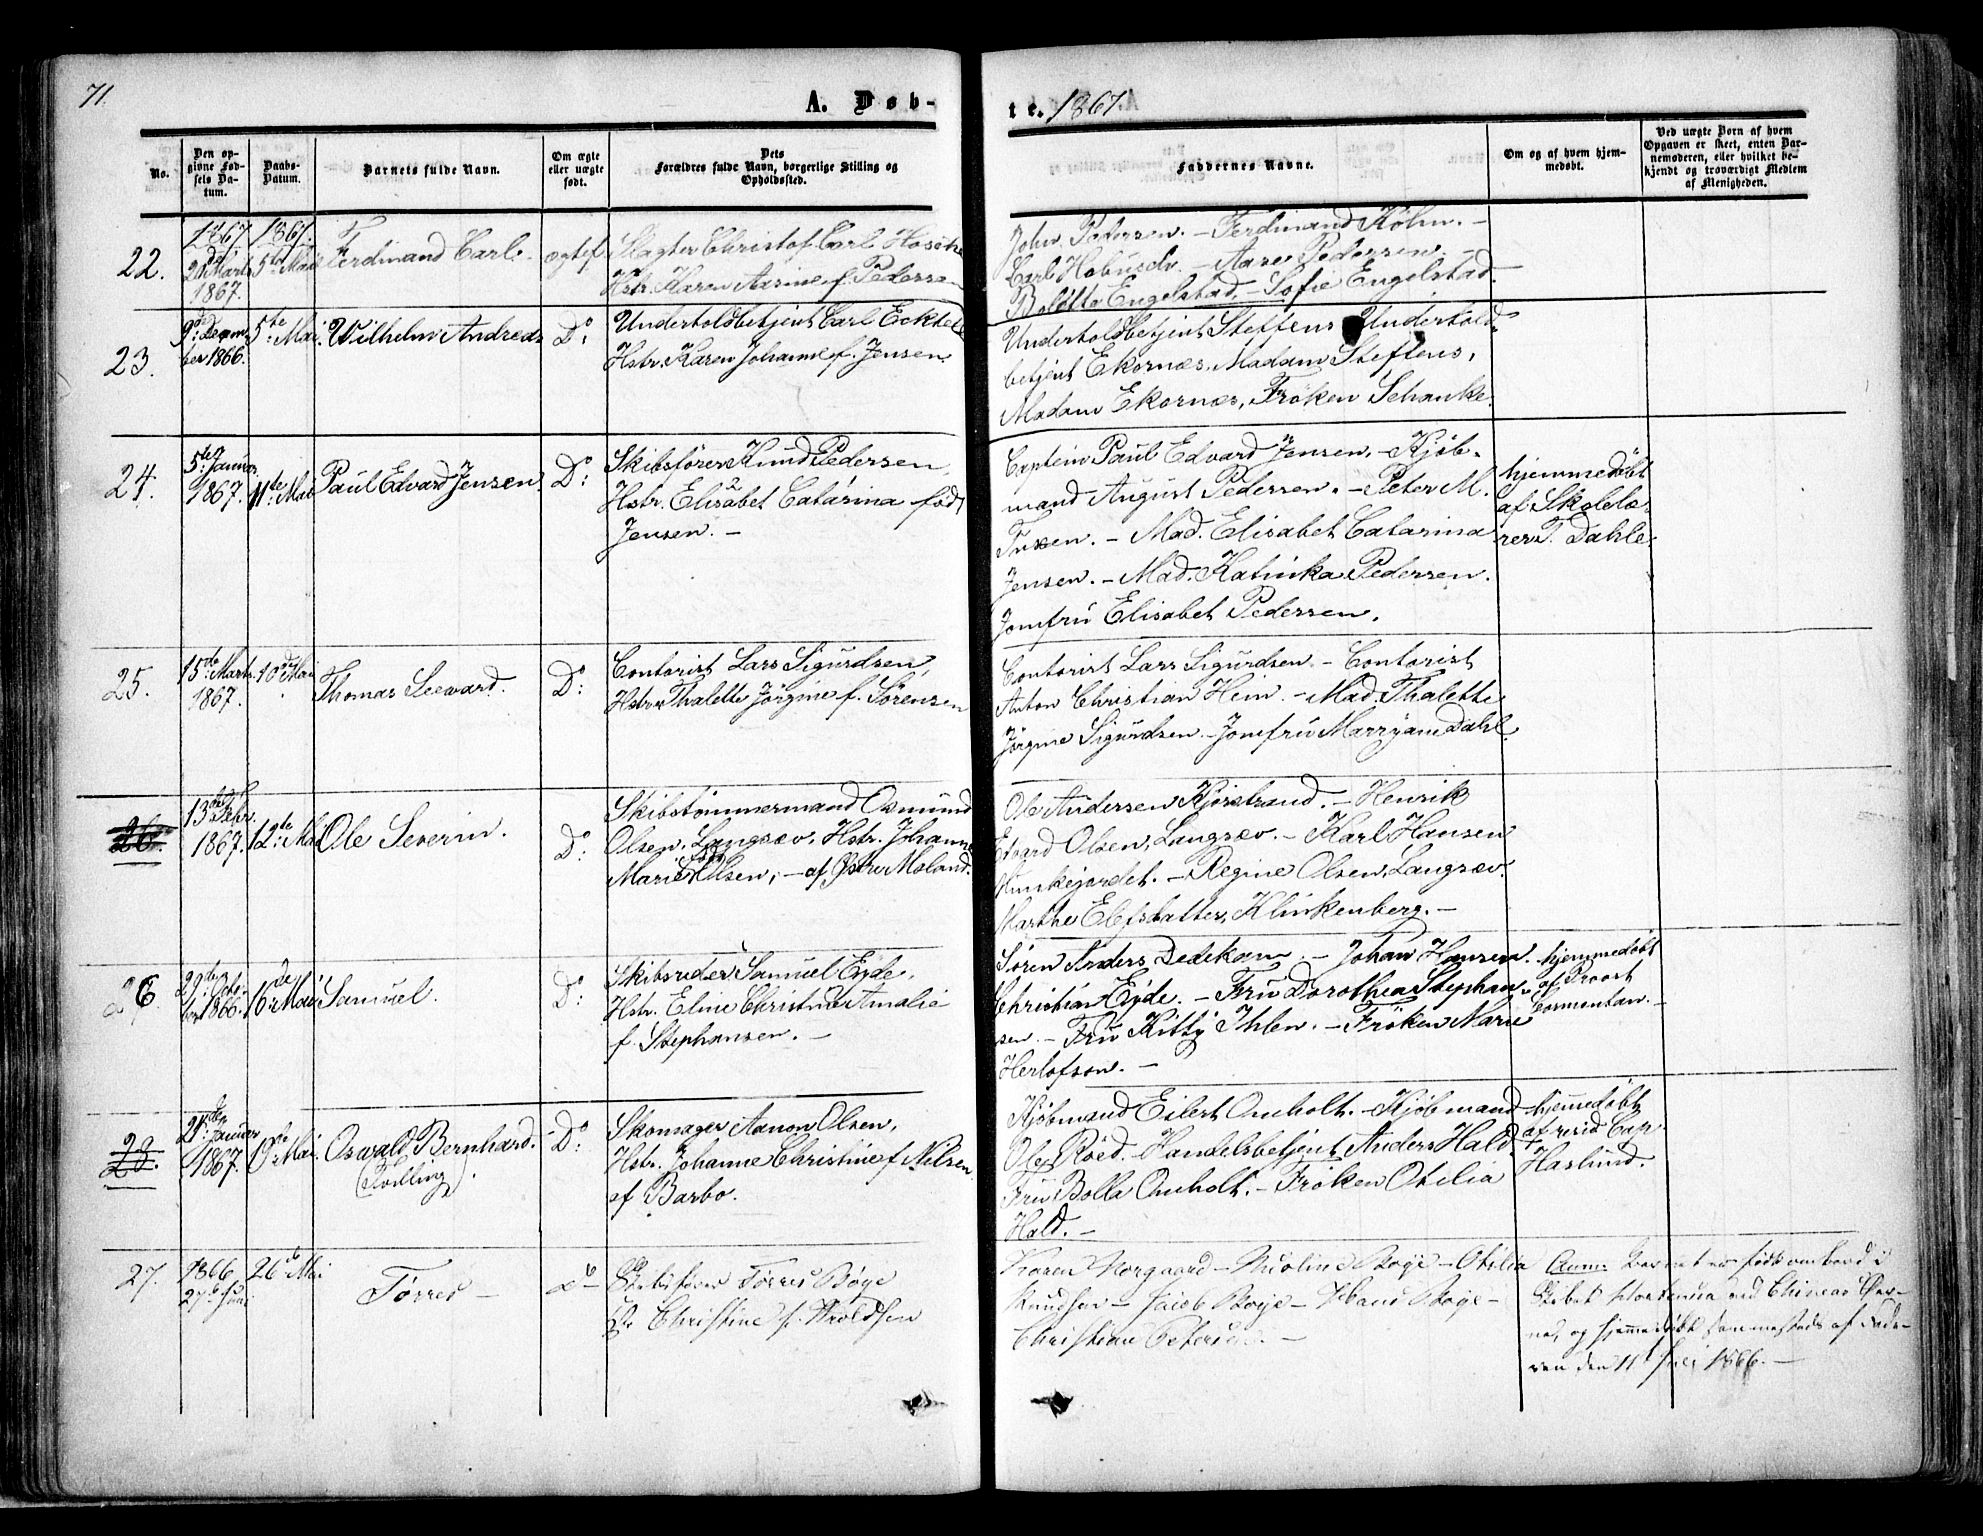 71.
A. Døb-
te. 1867.
No.
Den op-
givne Fød-
sels Da-
tum.
Daabs-
Datum.
Barnets fulde Navn.
Om ægte
eller uægte
født.
Dets
Forældres fulde Navn, borgerlige Stilling og
Opholdssted.
Faddernes Navne.
Om og af hvem hjem-
medøbt.
Ved uægte Born af hvem
Opgaven er skeet, enten Bar-
nemoderen, eller hvilket be-
kjendt og troværdigt Medlem
af Menigheden.
22.
1867.
2d Marts
1867.
1867.
5te Mai
Ferdinand Carl.
ægtef
Slagter Christof Carl
Hstr. Karen Aasine f. Pedersen
John Pedersen. - Ferdinand Holm. -
Carl - Aase Pedersen. -
Engelstad. - Sofie Engelstad.
23.
9de Decem-
ber 1866.
5te Mai.
Wilhelm Andreas
Do:
Undertoldbetjent Carl
Hstr. Karen Johanne f. Jensen
Undertoldbetjent Steffens Undertold-
betjent Ekornæs, Madam Steffens,
Madam Ekornæs, Frøken Schanke.
24.
5te Januar
1867.
11te Mai
Paul Edvard Jensen.
Do:
Skibsfører Knud Pedersen,
Hstr. Elisabet Catarina født
Jensen. -
Captein Paul Edvard Jensen. - Kjøb-
mand August Pedersen. - Peter M.
Tuxen. - Mad. Elisabet Catarina
Jensen. - Mad. Katinka Pedersen.
Jomfru Elisabet Pedersen.
hjemmedøbt
af Skolelæ-
rer T. Dahle.
25.
15de Marts
1867.
10de Mai
Thomas Seeward.
Do:
Contorist Lars Sigurdsen,
Hstr. Thalette Jørgine f. Sørensen
Contorist Lars Sigurdsen. - Contorist
Anton Christian Hein. - Mad. Thalette
Jørgine Sigurdsen. - Jomfru Dahl.
26.
13de Febr.
1867.
12te Mai
Ole Severin.
Do:
Skibstømmermand Osmund
Olsen, Langsæv, Hstr. Johanne
Marie født Olsen, - af Østre Moland.
Ole Andersen Kjørstrand. - Henrik
Edvard Olsen, Langsæv. - Karl Hansen
Munkejordet. - Regine Olsen, Langsæv.
Marthe Elefsdatter, Klinkenberg. -
26.
22de Octo-
ber 1866.
16de Mai
Samuel.
Do:
Skibsreder Samuel Eyde,
Hstr. Eline Christine Amalie
f. Stephansen. -
Søren Anders Dedekam. - Johan Hansen.
Christian Eyde. - Fru Dorothea Stephan-
sen. - Fru Kitty Ihlen. - Frøken Marie
Herlofson. -
hjemmedøbt
af Provst
Cormontan. -
28.
21de Januar
1867.
Mai.
Oswald Bernhard.
(Tvilling).
Do:
Skomager Aanon Olsen,
Hstr. Johanne Christine f. Nilsen
af Barbo.
Kjøbmand Eilert Omholt. - Kjøbmand
Ole Røed. - Handelsbetjent Anders Hald.
Fru Bolla Omholt. - Frøken Otilia
Hald. -
hjemmedøbt
af resid Cap.
Haslund.
27.
1866
27de Juni
26de Mai
Tørres -
Do -
Skibsfører Tørres Bøye
Christine f. Aroldsen
Karen Norgaard - Nicoline Boye - Otilia
Knudsen - Jacob Boye - Boye -
Christian Petersen. -
Anm: Barnet er født ombord i
Skibet Hortensia ved
og hjemmedøbt sammesteds af Fade-
ren den 11te Juli 1866. -